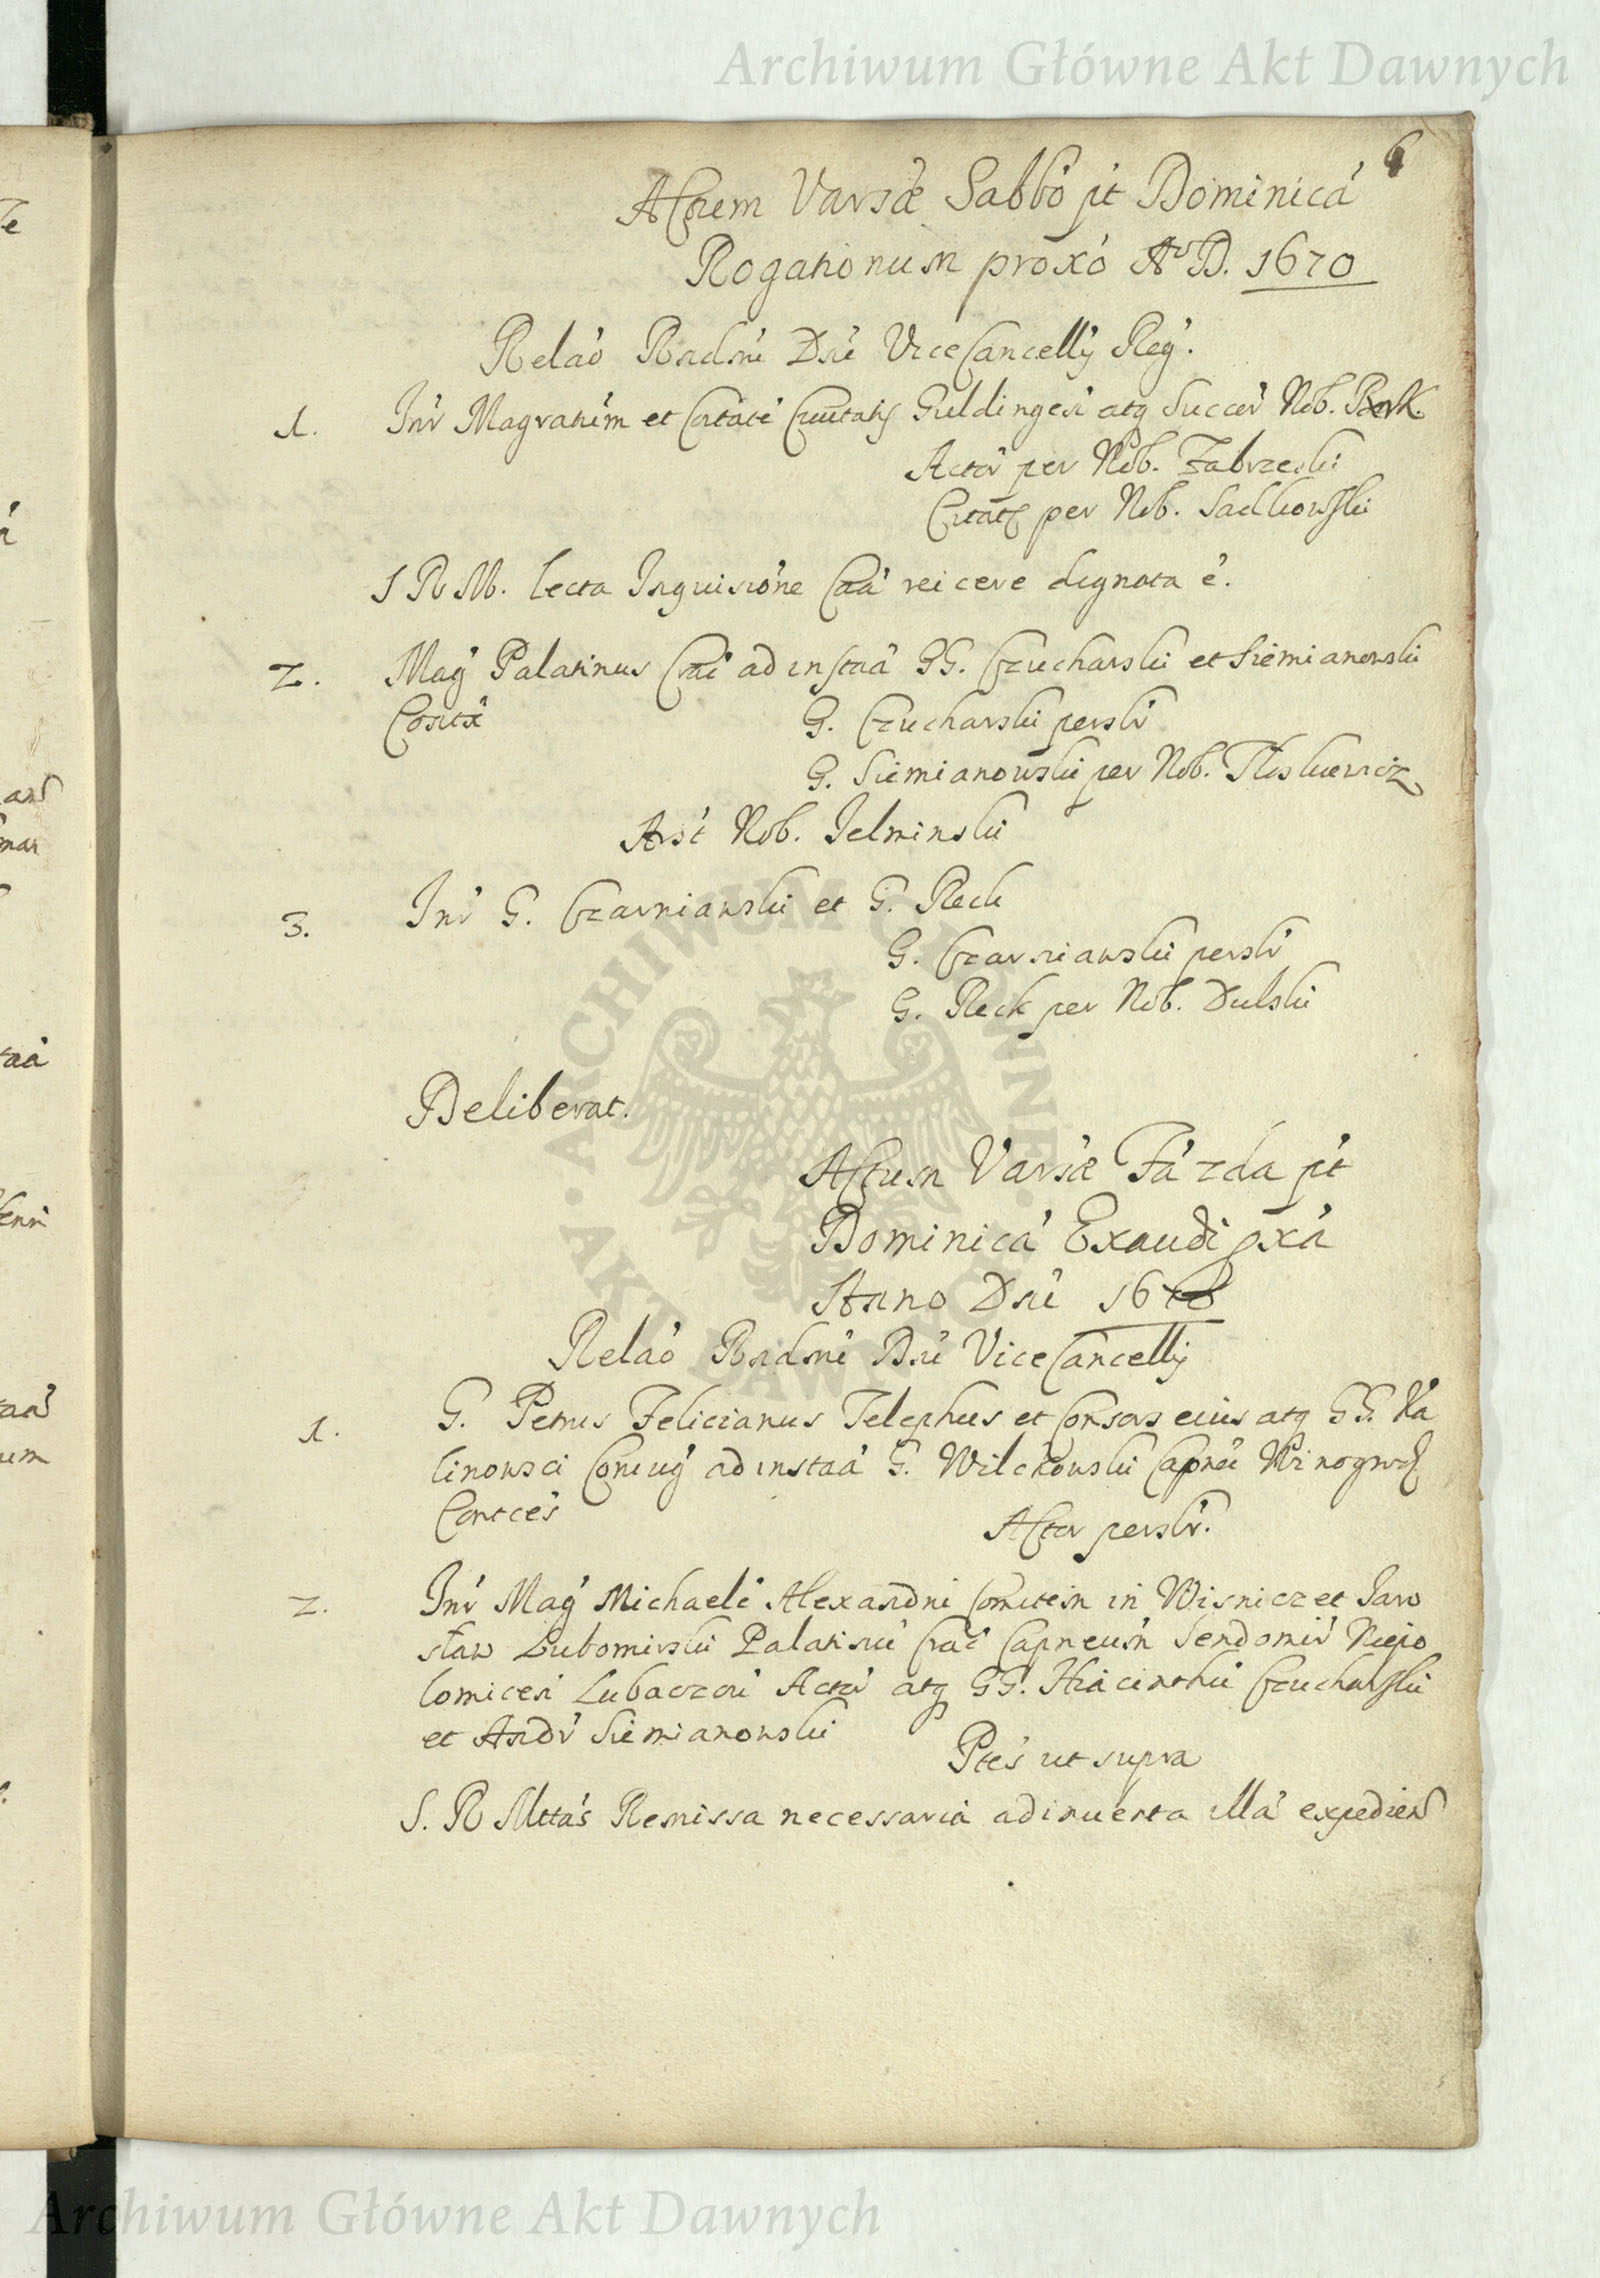 Archiwum Główne Akt Dawnych
6
Actum Varsae Sabbo pt Dominica
Rogationum proxo Ao D. 1670
Relao Rndmi Dni ViceCancellij Reg.
1. Inr Magratum et Coitate Civitatis Guldingen atq Succer Nob. Berk
Actor per Nob. Zabrzeski
Citat per Nob. Sadkowski
S R M. lecta Inquisione Caa reicere dignata e.
2. Mag Palatinus Crac ad instaa GG. Czucharski et Siemianowski
G. Czucharski persLr
G. Siemianowski per Nob.
Arst Nob. Jelminski
3. Inr G. Czarniawski et G. Reck
G. Czarniawski persLr
G. Reck per Nob. Dulski
Deliberat.
Actum Varsae Fa 2da pt
Dominica Exaudi pxa
Anno Dni 1670
Relao Rndmi Dni ViceCancellij
1. G. Petrus Felicianus Telephus et Consors eius atq GG. Ka
linowsci Coniug ad instaa G. Wilckowski Capnei Winogrod
Contces
Actor persLr.
2. Inr Mag Michaele Alexandru Comitem in Wisnicz et Jaro
sław Lubomirski Palatinu Crac Capneum Sendomir Niepo
lomicen Lubaczou Actor atq GG. Hiacinthu Czucharski
et Andr Siemianowski
Ptes ut supra
S. R Mttas Remissa necessaria adinventa illa expedien
ARCHIWUM GŁÓWNE AKT DAWNYCH
Archiwum Główne Akt Dawnych